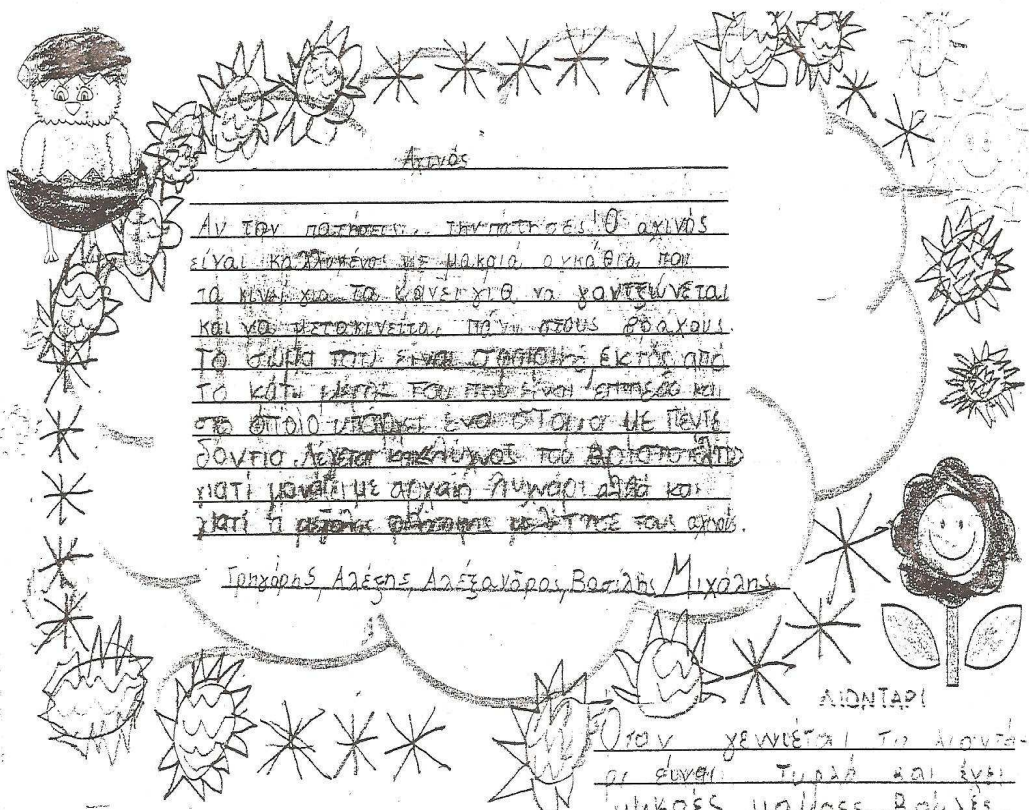 Αχινός
Αν τον πατήσεις.. την πάτησες! Ο αχινός
είναι καλλυμένος με μακριά αγκάθια που
τα κινεί για τα κάνει για να γαντζώνεται
και να μετακινείται πάνω στους βράχους.
Το σώμα του είναι εκτός από
το κάτω μέρος του που είναι επίπεδο και
στο οποίο υπάρχει ένα στόμα με πέντε
δόντια. Λέγεται λύχνος του Αριστοτέλη
γιατί μοιάζει με αρχαίο λυχνάρι αλλά και
γιατί ο μεγάλος μελέτησε τους αχινούς.
Γρηγόρης, Αλέξης, Αλέξανδρος, Βασίλης Μιχάλης
ΛΙΟΝΤΑΡΙ
Όταν γεννιέται το λιοντά-
ρι είναι τυφλό και έχει
μικρές μαύρες βούλες